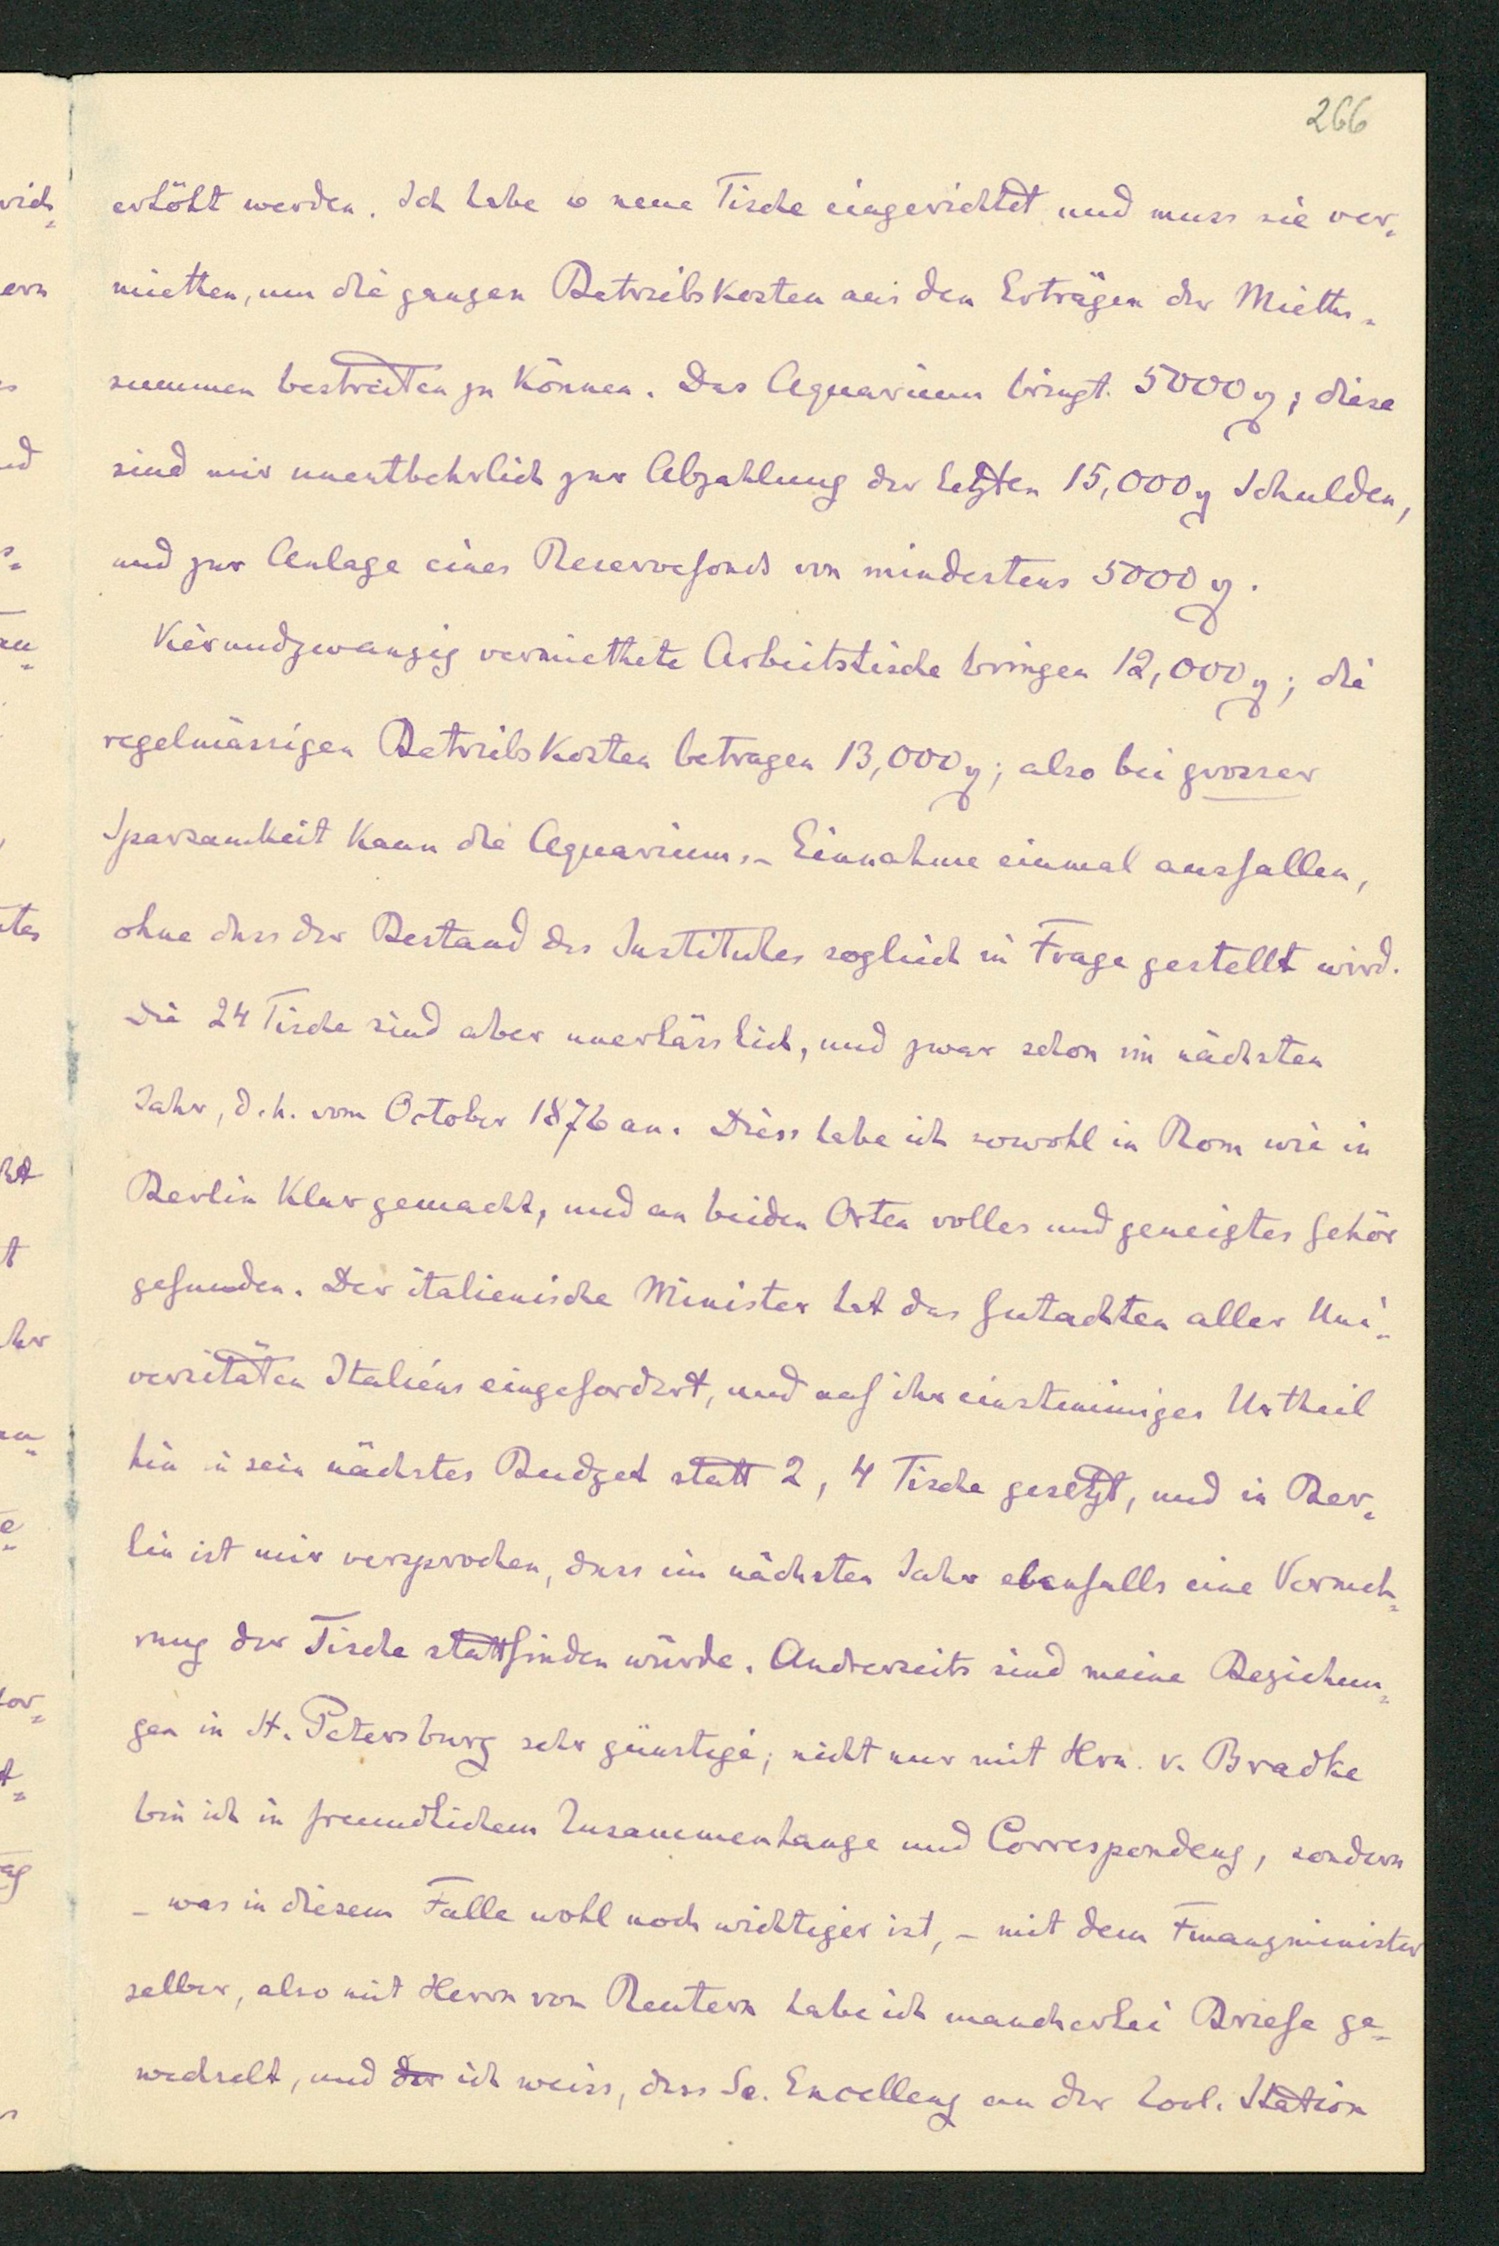 266
erhöht werden. Ich habe 10 neue Tische eingerichtet und muss sie ver-
miethen, um die ganzen Betriebskosten aus den Erträgen der Mieths-
summen bestreiten zu können. Das Aquarium bringt 5000 ; diese
sind mir unentbehrlich zur Abzahlung der letzten 15,000 Schulden,
und zur Anlage eines Reservefonds von mindestens 5000 .
Vierundzwanzig vermiethete Arbeitstische bringen 12,000 ; die
regelmässigen Betriebskosten betragen 13,000 ; also bei grosser
Sparsamkeit kann die Aquariums-Einnahme einmal ausfallen,
ohne dass der Bestand des Institutes sogleich in Frage gestellt wird.
Die 24 Tische sind aber unerlässlich, und zwar schon im nächsten
Jahr, d.h. vom October 1876 an. Diess habe ich sowohl in Rom wie in
Berlin klar gemacht, und an beiden Orten volles und geneigtes Gehör
gefunden. Der italienische Minister hat das Gutachten aller Uni-
versitäten Italiens eingefordert, und auf ihr einstimmiges Urtheil
hin in sein nächstes Budget statt 2, 4 Tische gesetzt, und in Ber-
lin ist mir versprochen, dass im nächsten Jahr ebenfalls eine Vermeh-
rung der Tische stattfinden würde. Andrerseits sind meine Beziehun-
gen in St. Petersburg sehr günstige; nicht nur mit Hrn. v. Bradke
bin ich in freundlichem Zusammenhange und Correspondenz, sondern
– was in diesem Falle wohl noch wichtiger ist, – mit dem Finanzminister
selber, also mit Herrn von Reutern habe ich mancherlei Briefe ge-
wechselt, und der ich weiss, dass Se. Excellenz an der Zool. Station